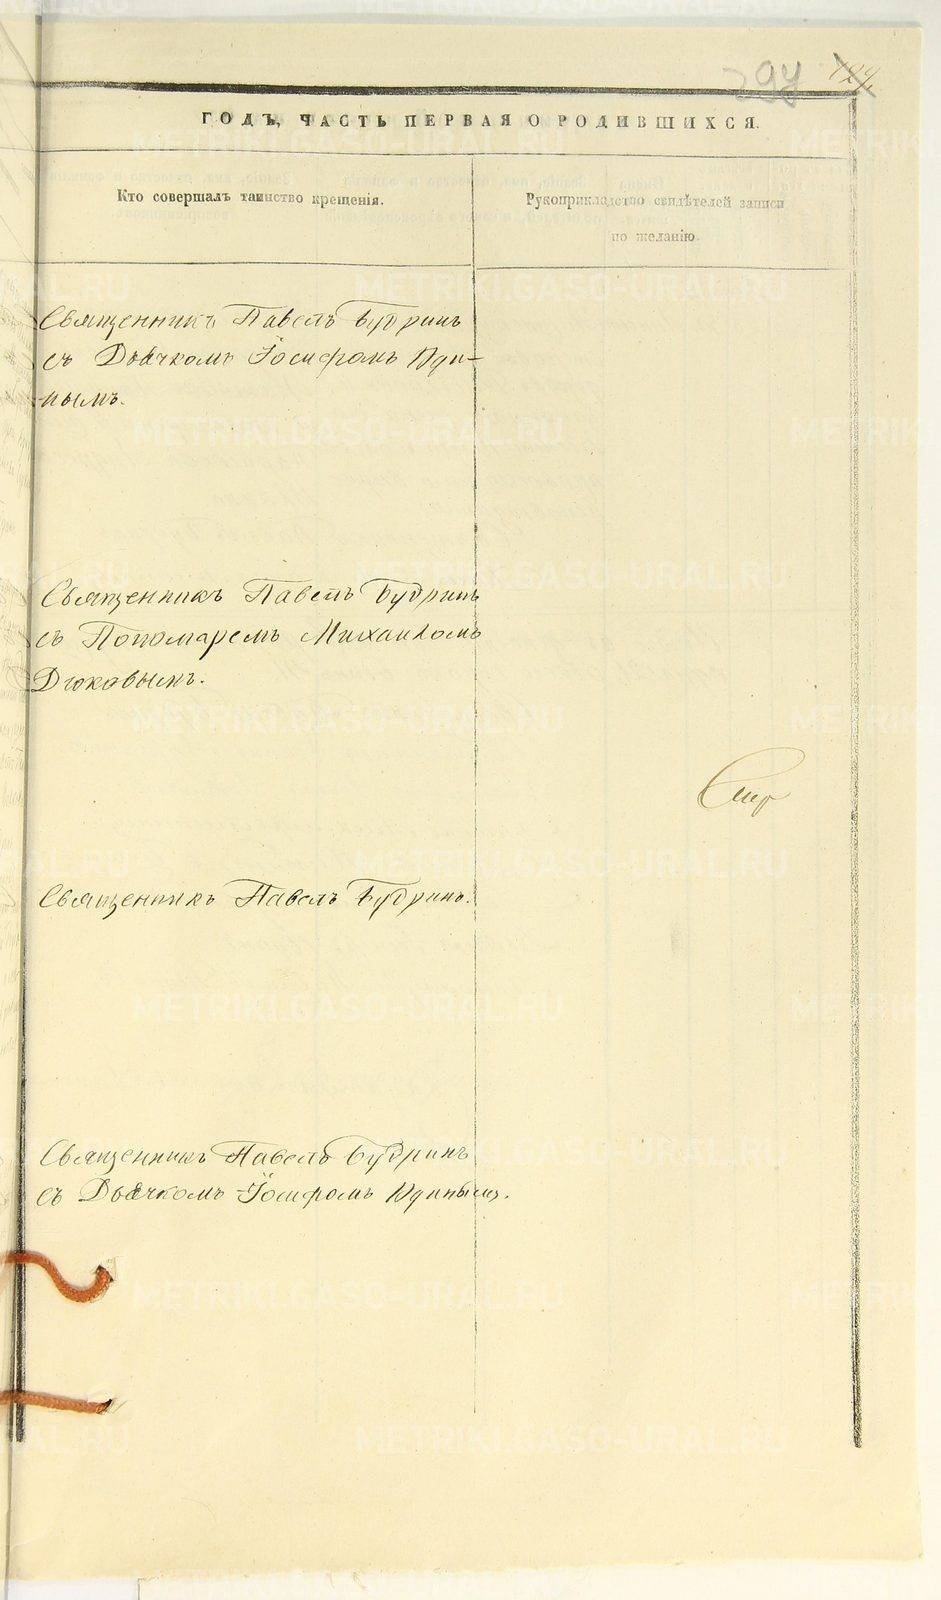 294
124
ГОДЪ, ЧАСТЬ ПЕРВАЯ О РОДИВШИХСЯ.
Кто совершалъ таинство крещенія.
Рукоприкладство свидѣтелей записи
по желанію.
Священникъ Павелъ Будринъ
съ Дьячкомъ Іосифомъ Юди-
нымъ.
Священникъ Павелъ Будринъ
съ Пономаремъ Михаиломъ
Дюковымъ.
Священникъ Павелъ Будринъ.
Священникъ Павелъ Будринъ
съ Дьячкомъ Іосифомъ Юдинымъ.
METRIKI.GASO-URAL.RU